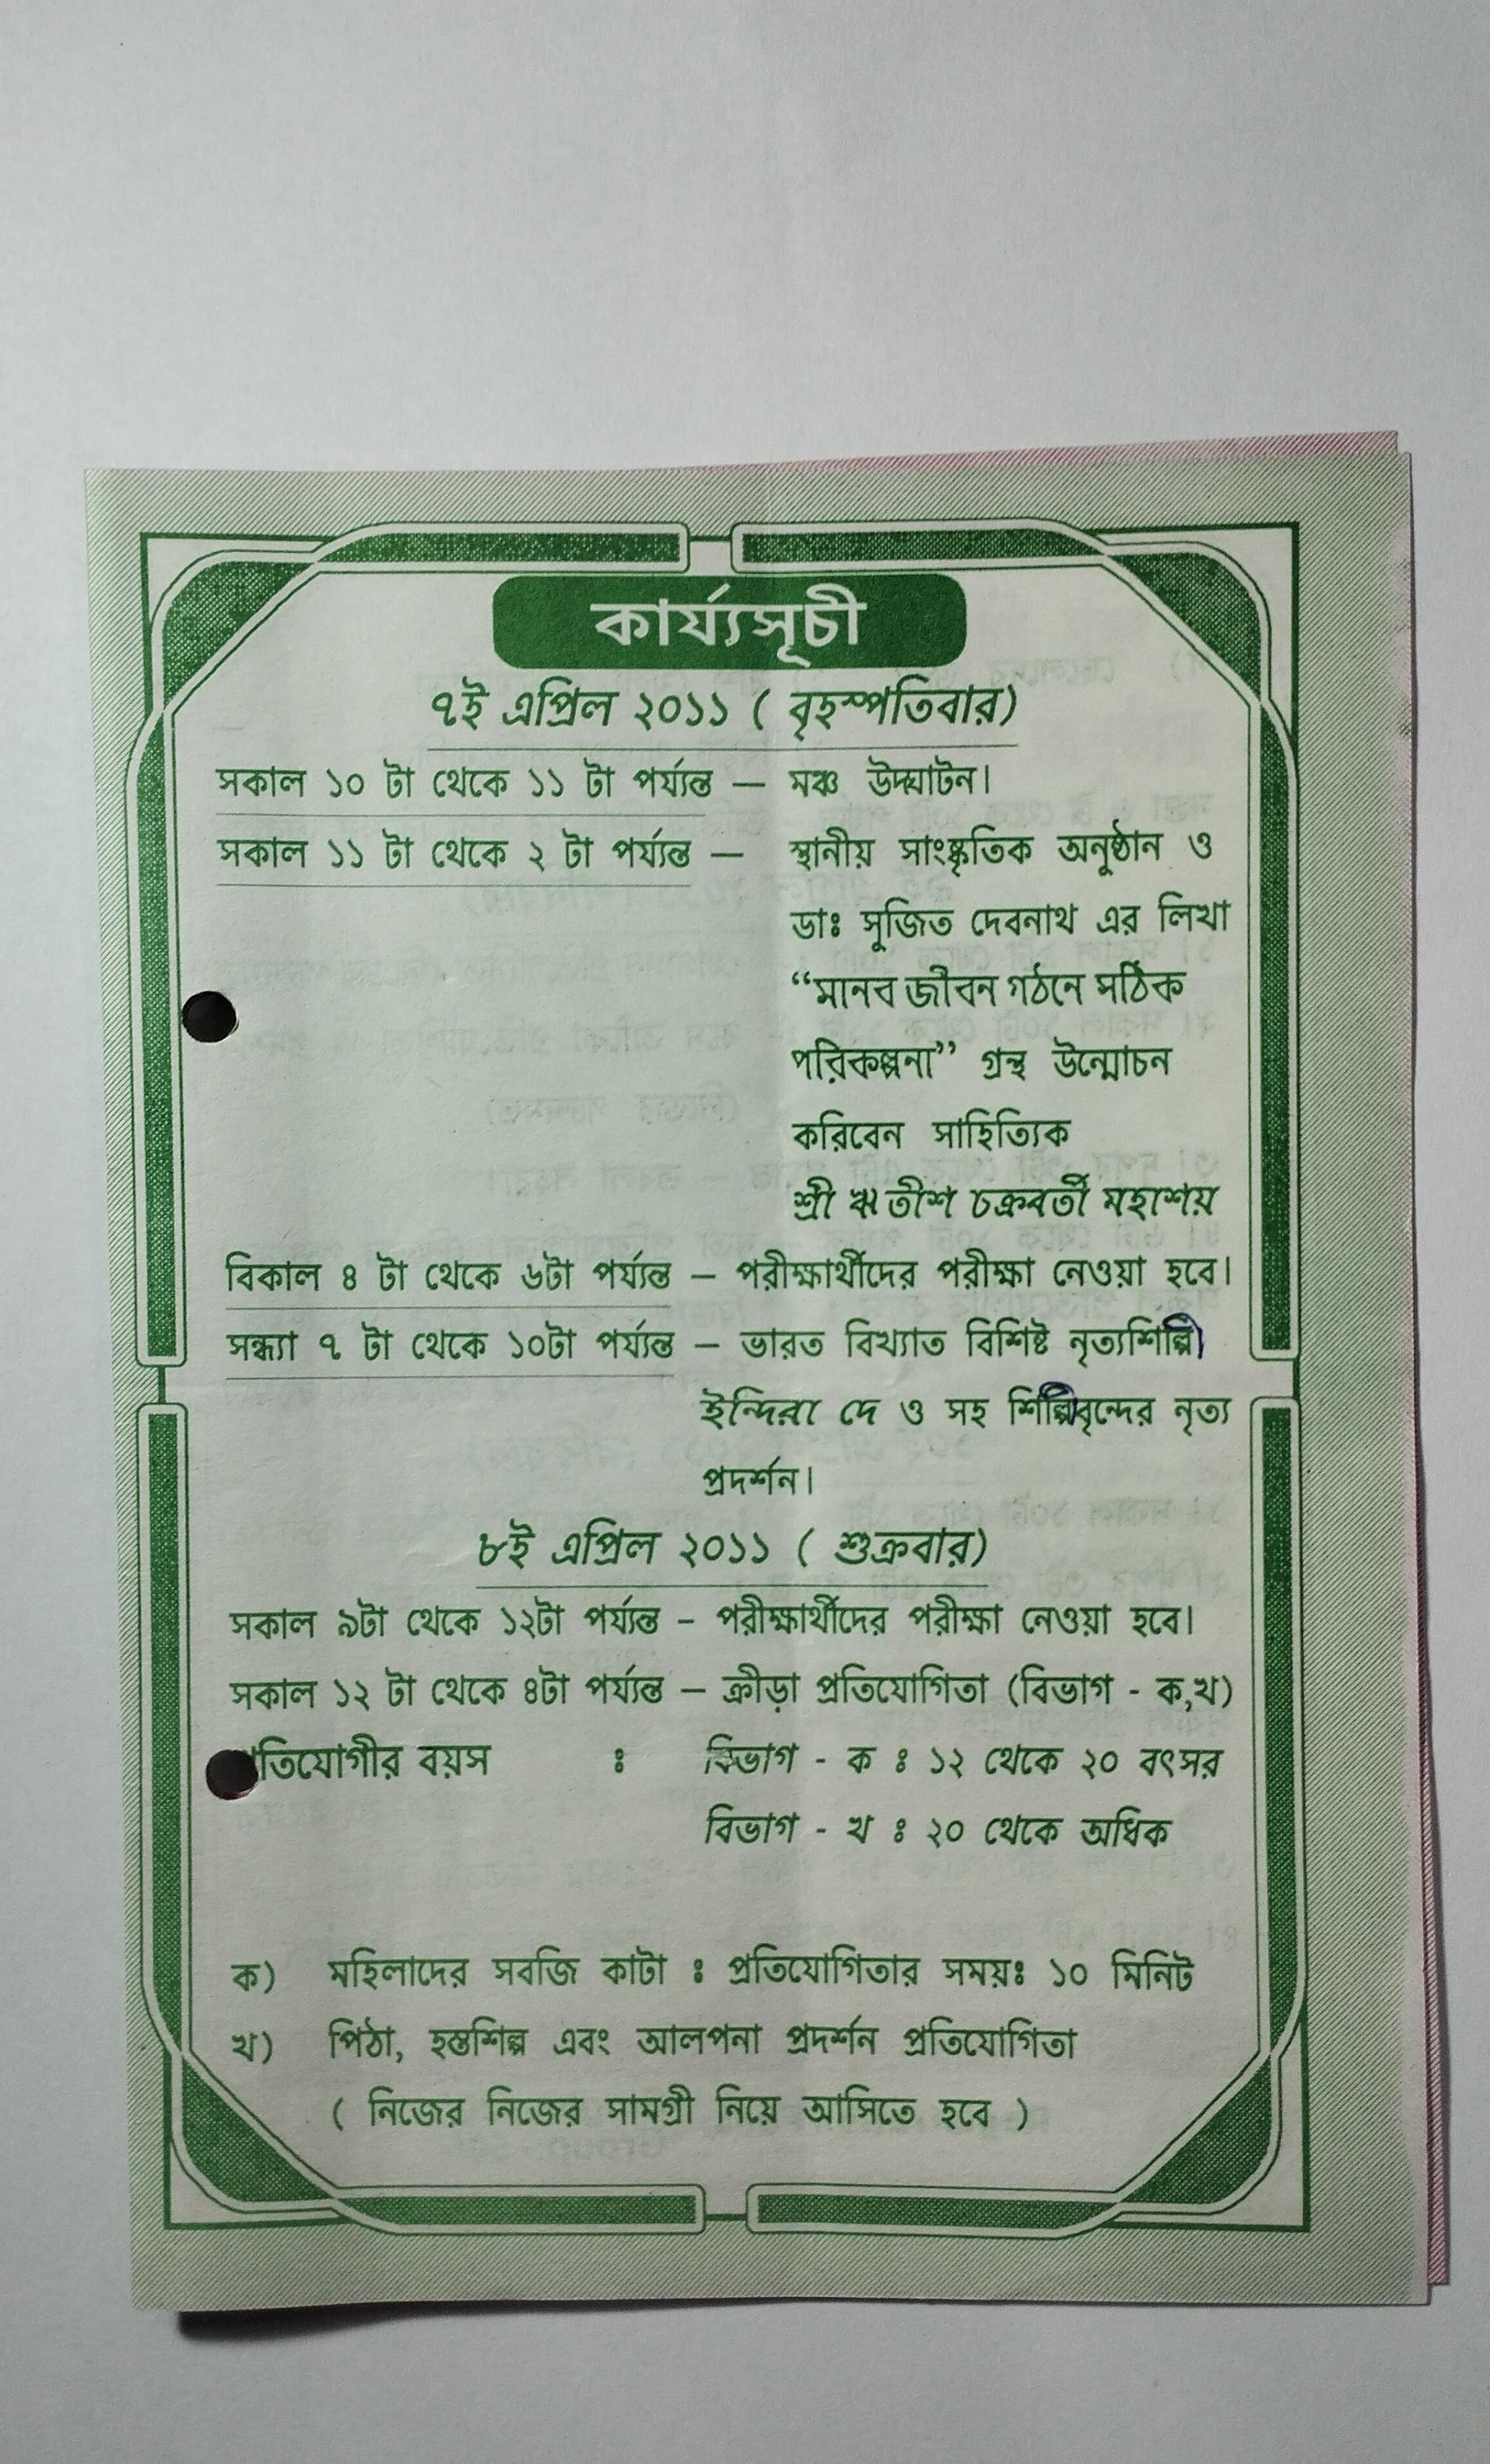 কার্য্যসূচী
৭ই এপ্রিল ২০১১ ( বৃহস্পতিবার)
সকাল ১০ টা থেকে ১১ টা পর্য্যন্ত — মঞ্চ উদ্ঘাটন।
সকাল ১১ টা থেকে ২ টা পর্য্যন্ত — স্থানীয় সাংস্কৃতিক অনুষ্ঠান ও
ডাঃ সুজিত দেবনাথ এর লিখা
“মানব জীবন গঠনে সঠিক
পরিকল্পনা” গ্রন্থ উন্মোচন
করিবেন সাহিত্যিক
শ্রী ঋতীশ চক্রবর্তী মহাশয়
বিকাল ৪ টা থেকে ৬টা পর্য্যন্ত – পরীক্ষার্থীদের পরীক্ষা নেওয়া হবে।
সন্ধ্যা ৭ টা থেকে ১০টা পর্য্যন্ত – ভারত বিখ্যাত বিশিষ্ট নৃত্যশিল্পী
ইন্দিরা দে ও সহ শিল্পীবৃন্দের নৃত্য
প্রদর্শন।
৮ই এপ্রিল ২০১১ ( শুক্রবার)
সকাল ৯টা থেকে ১২টা পর্য্যন্ত – পরীক্ষার্থীদের পরীক্ষা নেওয়া হবে।
সকাল ১২ টা থেকে ৪টা পর্য্যন্ত – ক্রীড়া প্রতিযোগিতা (বিভাগ - ক,খ)
তিযোগীর বয়স ঃ বিভাগ - ক ঃ ১২ থেকে ২০ বৎসর
বিভাগ - খ ঃ ২০ থেকে অধিক
ক) মহিলাদের সবজি কাটা ঃ প্রতিযোগিতার সময়ঃ ১০ মিনিট
খ) পিঠা, হস্তশিল্প এবং আলপনা প্রদর্শন প্রতিযোগিতা
( নিজের নিজের সামগ্রী নিয়ে আসিতে হবে )